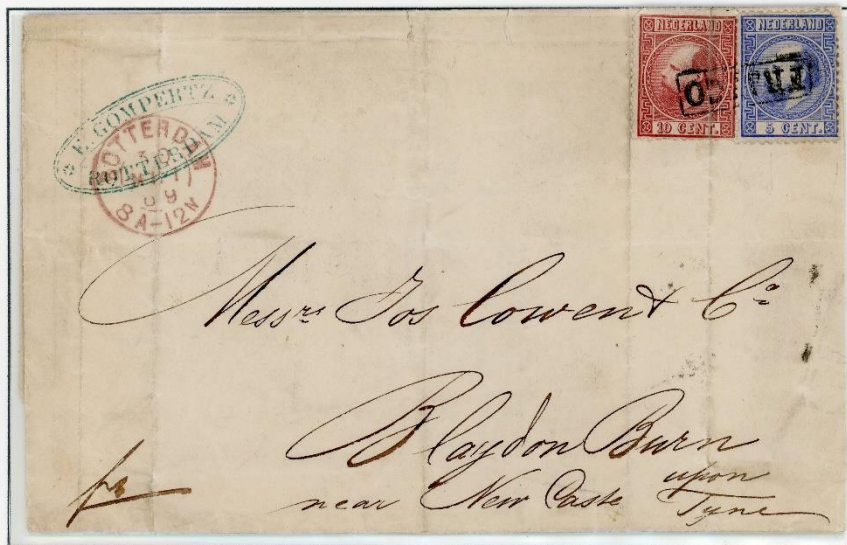 NEDERLAND NEDERLAND
10 CENT. 5 CENT.
FRANCO
E. GOMPERTZ
ROTTERDAM
ROTTERDAM
69
8A-12N
Messrs Jos Cowen & Co
Blaydon Burn
near New Castle upon
Tyne